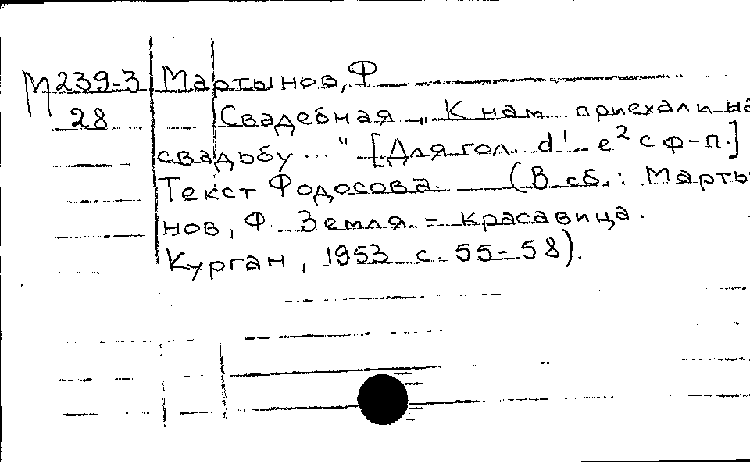 М239-3 Мартынов, Ф
28 Свадебная „К нам приехали на
свадьбу..." [Для гол. d¹-e² с ф-п.]
Текст Фодосова (В сб.: Марты
нов, Ф. Земля-красавица.
Курган, 1953 с. 55-58).